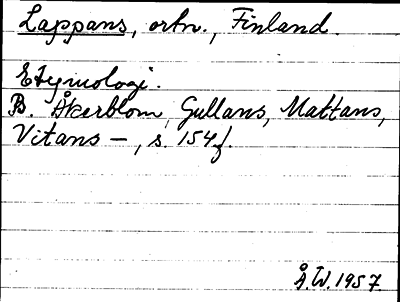 Lappans, ortn., Finland.
Etymologi.
B. Åkerblom, Gullans, Mattans,
Vitans –, s. 154 f.
Å.W. 1957.